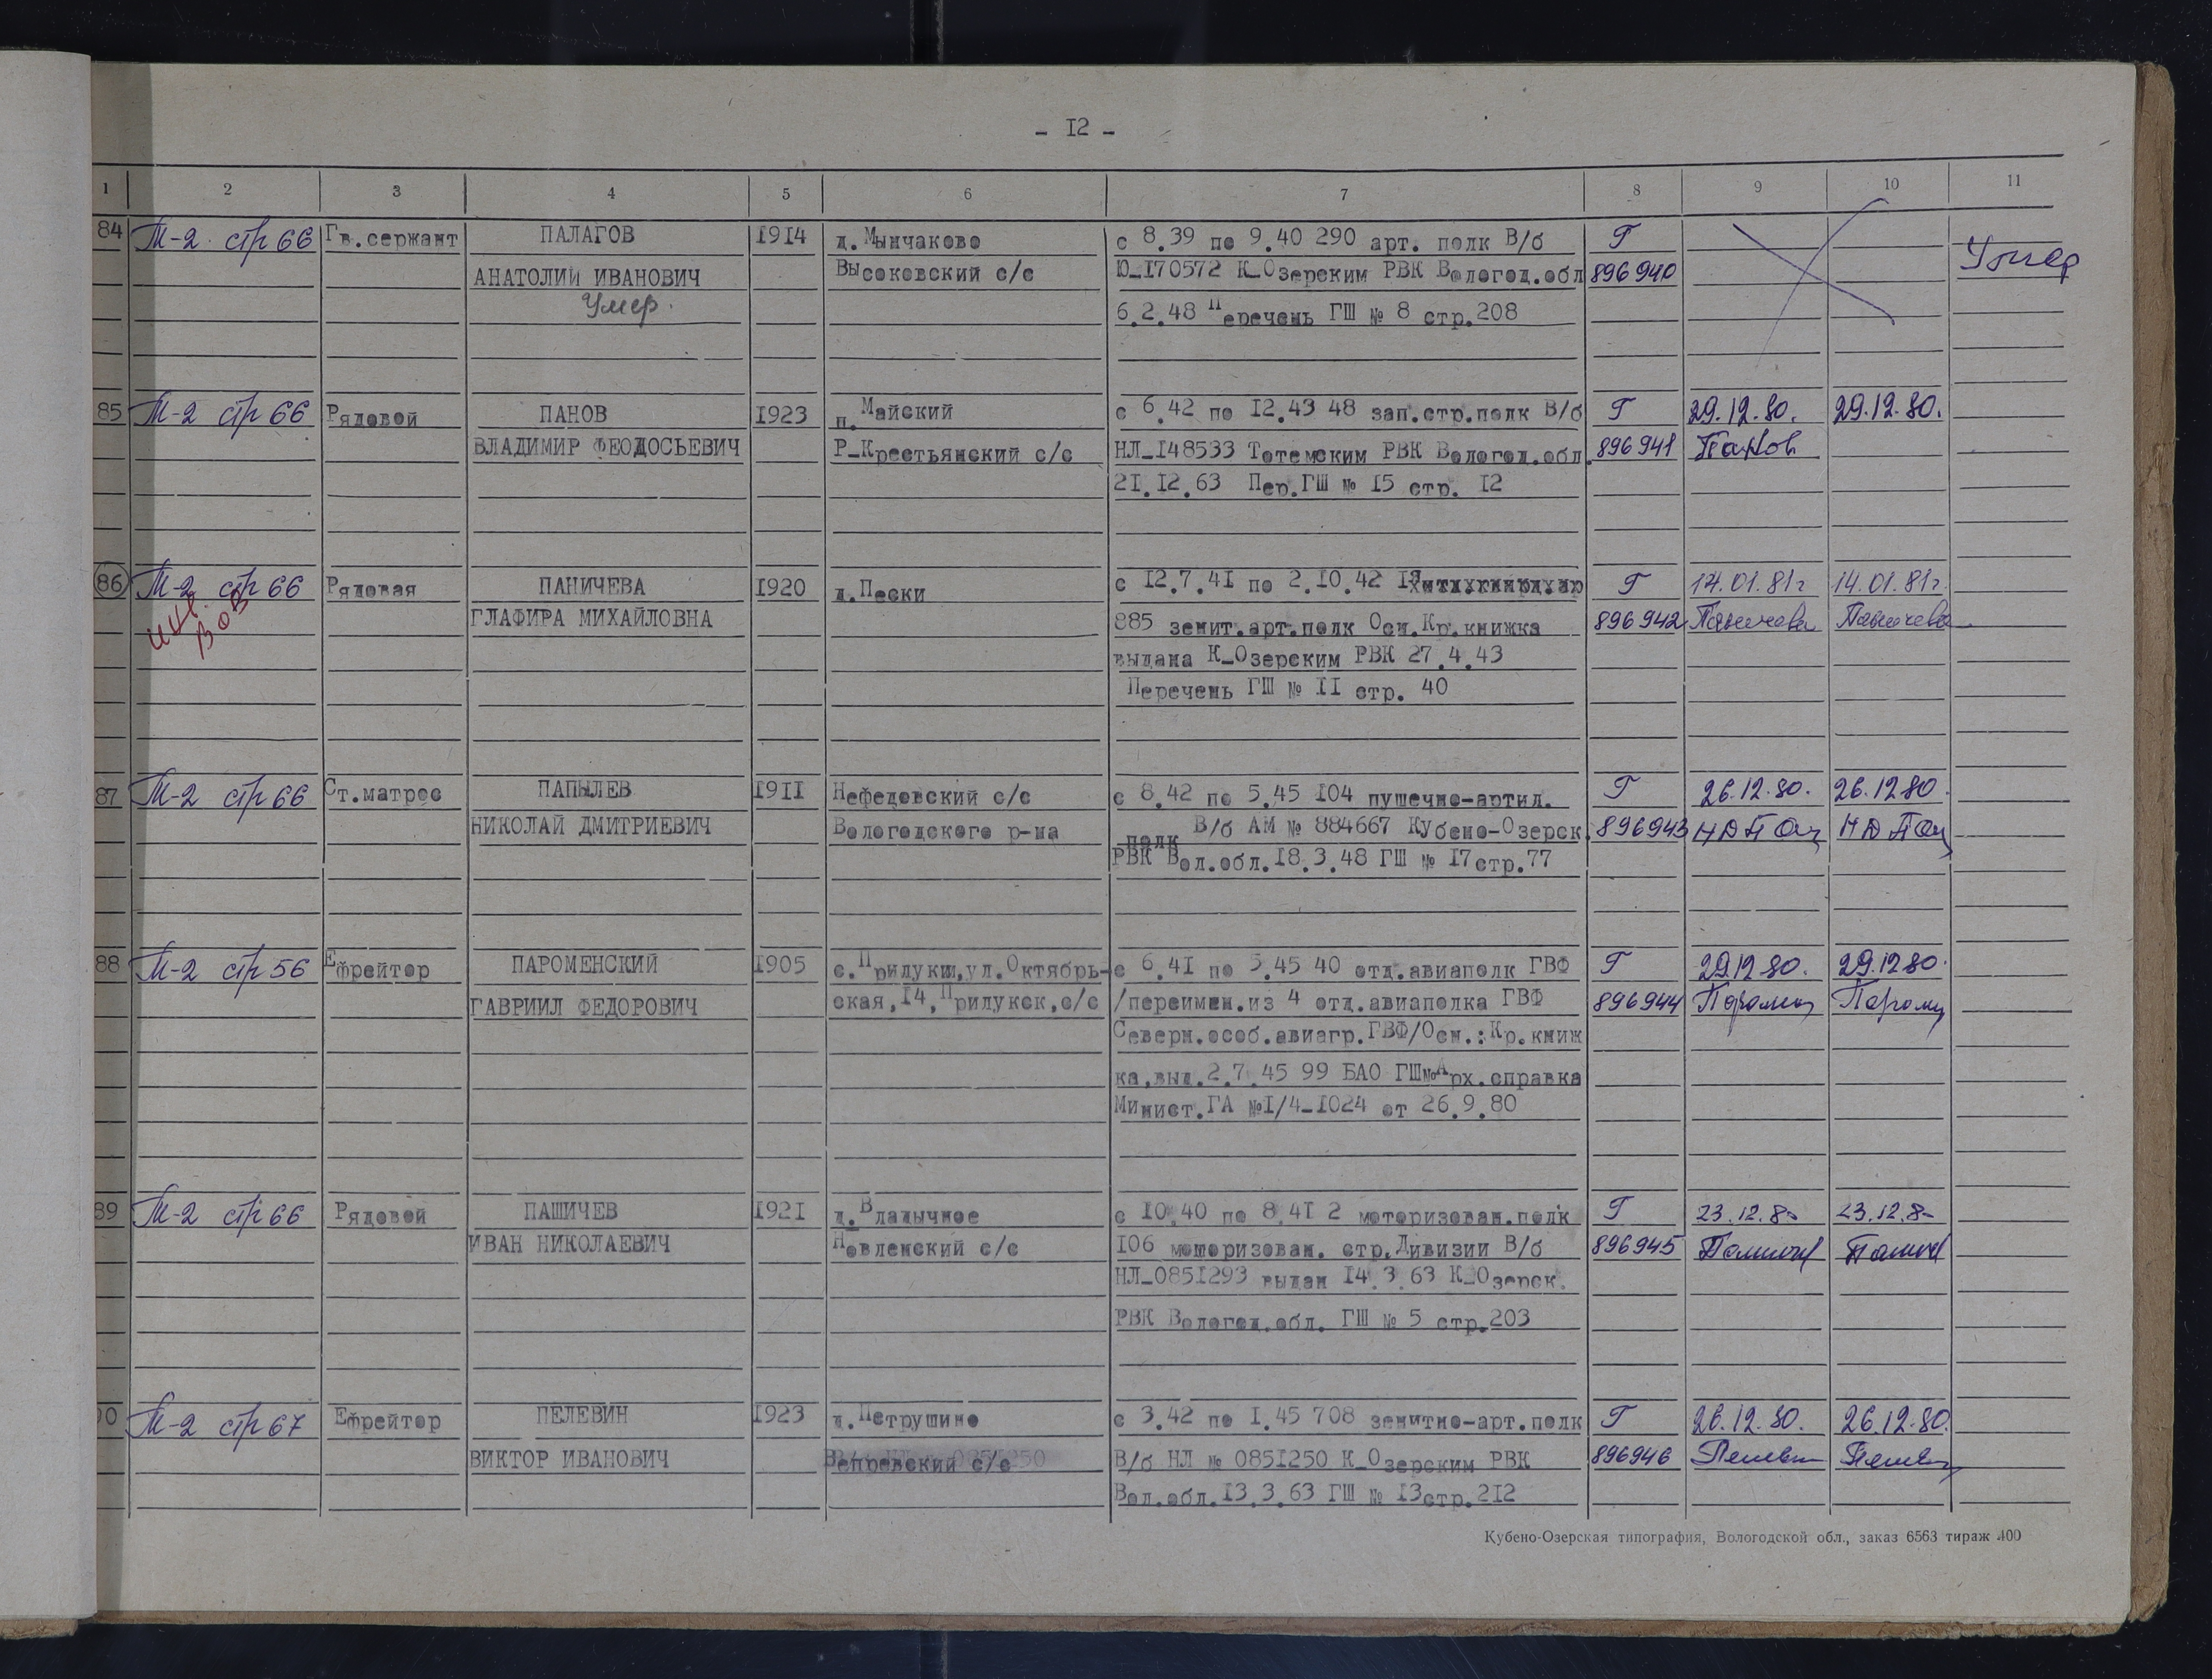 - 12 -
1 2 3 4 5 6 7 8 9 10 11
84 М-2 стр 66 Гв.сержант ПАЛАГОВ 1914 д.Мынчаково с 8.39 по 9.40 290 арт. полк В/б Г
АНАТОЛИЙ ИВАНОВИЧ Высоковский с/с Ю-170572 К-Озерским РВК Вологод.обл 896940 Умер
Умер. 6.2.48 Перечень ГШ № 8 стр.208
85 М-2 стр 66 Рядовой ПАНОВ 1923 п.Майский с 6.42 по 12.43 48 зап.стр.полк В/б Г 29.12.80. 29.12.80.
ВЛАДИМИР ФЕОДОСЬЕВИЧ Р-Крестьянский с/с НЛ-148533 Тотемским РВК Вологод.обл. 896941 Панов
21.12.63 Пер.ГШ № 15 стр. 12
86 М-2 стр 66 Рядовая ПАНИЧЕВА 1920 д.Пески с 12.7.41 по 2.10.42 Г 14.01.81г 14.01.81г
инв. ВОВ ГЛАФИРА МИХАЙЛОВНА 885 зенит.арт.полк Осн.Кр.книжка 896942 Паничева Паничева
выдана К-Озерским РВК 27.4.43
Перечень ГШ № 11 стр. 40
87 М-2 стр 66 Ст.матрос ПАПЫЛЕВ 1911 Нефедовский с/с с 8.42 по 5.45 104 пушечно-артил. Г 26.12.80. 26.12.80.
НИКОЛАЙ ДМИТРИЕВИЧ Вологодского р-на полк В/б АМ № 884667 Кубено-Озерск. 896943
РВК Вол.обл.18.3.48 ГШ № 17стр.77
88 М-2 стр 56 Ефрейтор ПАРОМЕНСКИЙ 1905 с.Прилуки,ул.Октябрь- с 6.41 по 5.45 40 отд.авиаполк ГВФ Г 29.12.80. 29.12.80.
ГАВРИИЛ ФЕДОРОВИЧ ская,14,Прилукск.с/с /переимен.из 4 отд.авиаполка ГВФ 896944
Северн.особ.авиагр.ГВФ/Осн.:Кр.книж
ка,выд.2.7.45 99 БАО ГШ№Арх.справка
Минист.ГА №1/4-1024 от 26.9.80
89 М-2 стр 66 Рядовой ПАШИЧЕВ 1921 д.Владычное с 10.40 по 8.41 2 моторизован.полк Г 23.12.80 23.12.80
ИВАН НИКОЛАЕВИЧ Новленский с/с 106 моторизован. стр.Дивизии В/б 896945
НЛ-0851293 выдан 14.3.63 К-Озерск.
РВК Вологод.обл. ГШ № 5 стр.203
90 М-2 стр 67 Ефрейтор ПЕЛЕВИН 1923 д.Петрушино с 3.42 по 1.45 708 зенитно-арт.полк Г 26.12.80. 26.12.80.
ВИКТОР ИВАНОВИЧ Вепревский с/с В/б НЛ № 0851250 К-Озерским РВК 896946
Вол.обл.13.3.63 ГШ № 13стр.212
Кубено-Озерская типография, Вологодской обл., заказ 6563 тираж 400